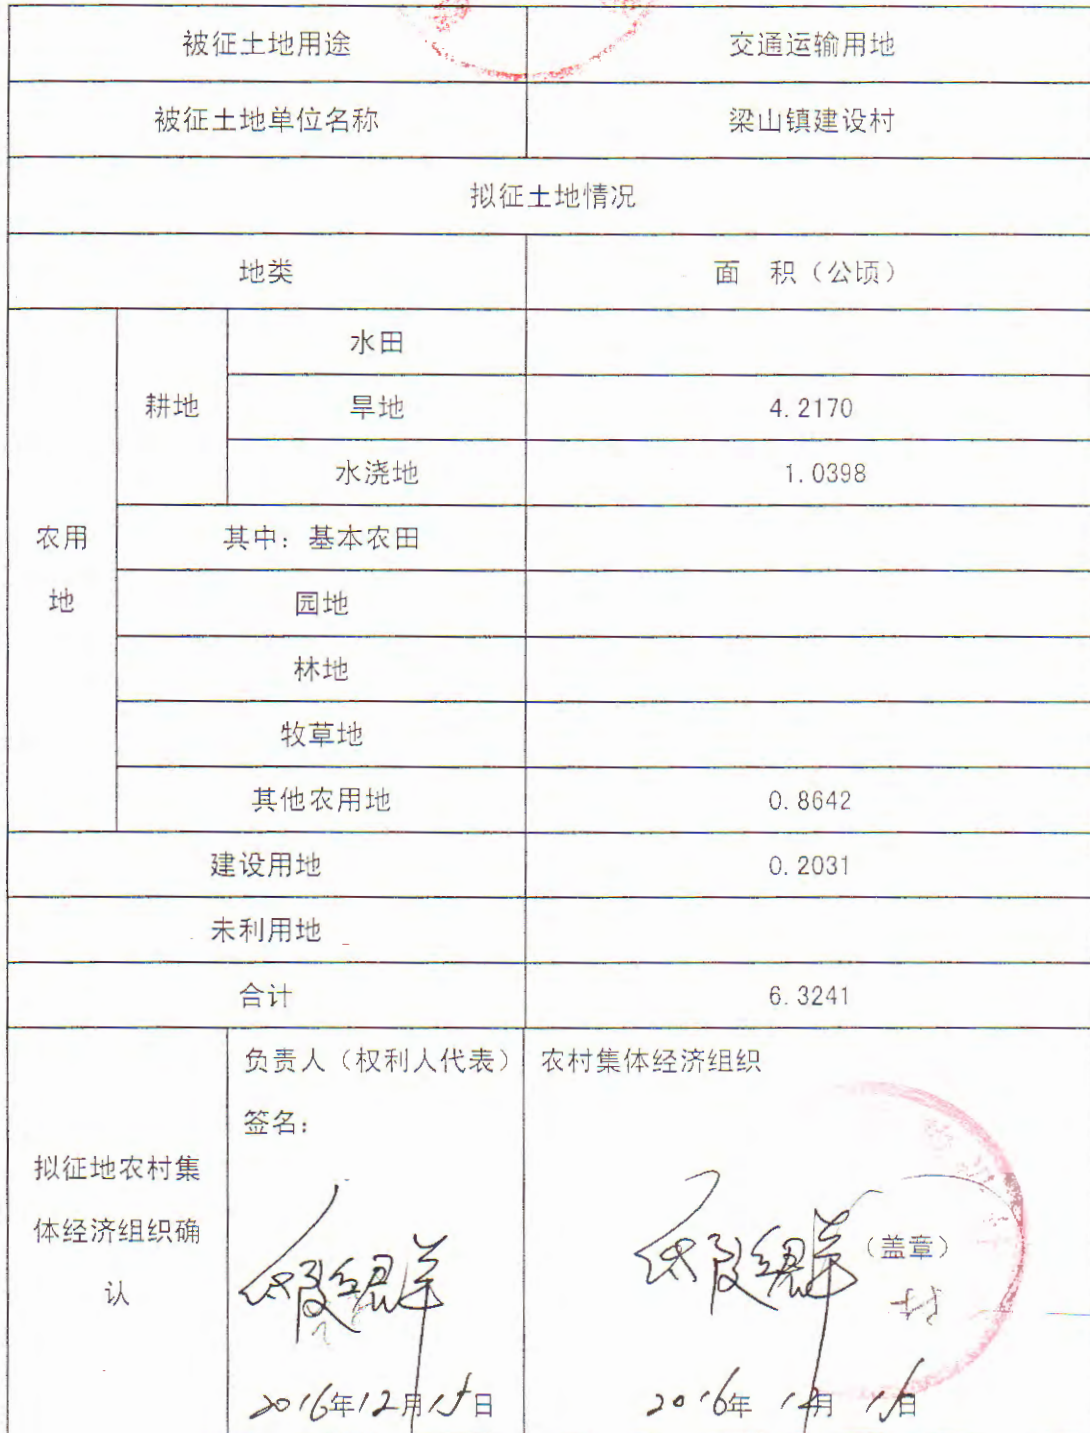 被征土地用途 交通运输用地
被征土地单位名称 梁山镇建设村
拟征土地情况
地类 面 积（公顷）
农用地
耕地
水田
旱地 4.2170
水浇地 1.0398
其中：基本农田
园地
林地
牧草地
其他农用地 0.8642
建设用地 0.2031
未利用地
合计 6.3241
拟征地农村集
体经济组织确
认
负责人（权利人代表）
签名：
2016年12月15日
农村集体经济组织
（盖章）
2016年12月15日